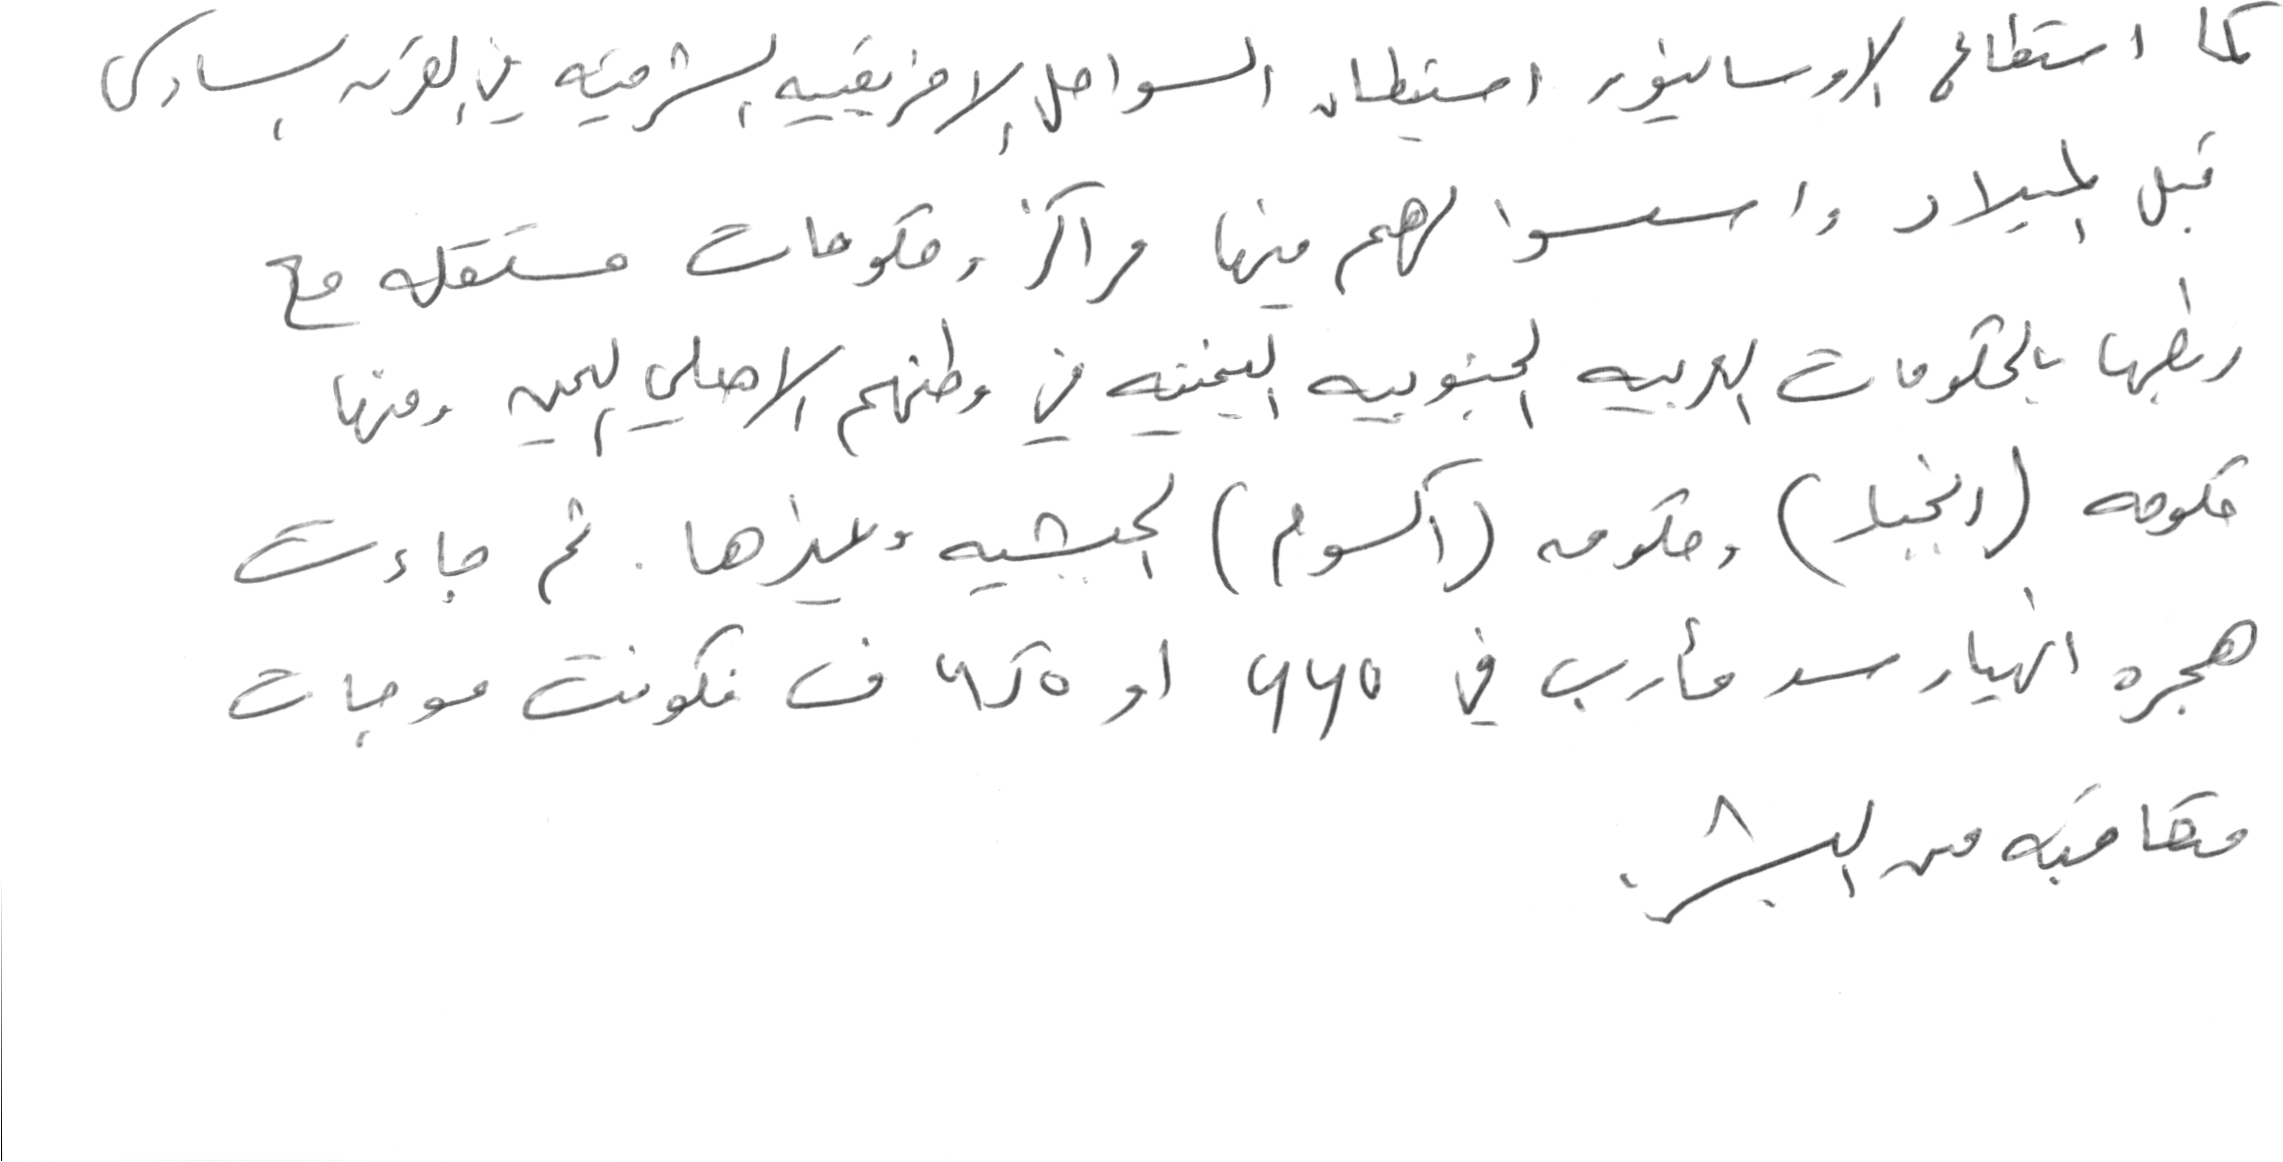 كما استطاع الاوسانيون استيطان السواحل الافريقيه الشرقيه في القرن السادس
قبل الميلاد واسسوا لهم فيها مراكز وحكومات مستقله مع
ربطها بالحكومات العربيه الجنوبيه اليمنيه في وطنهم الاصلي اليمن ومنها
حكومه ( ) وحكومه (اكسوم) الحبشيه وغيرها. ثم جاءت
هجره انهيار سد مأرب في او ف فكونت موجات
متعاقبه من البشر.